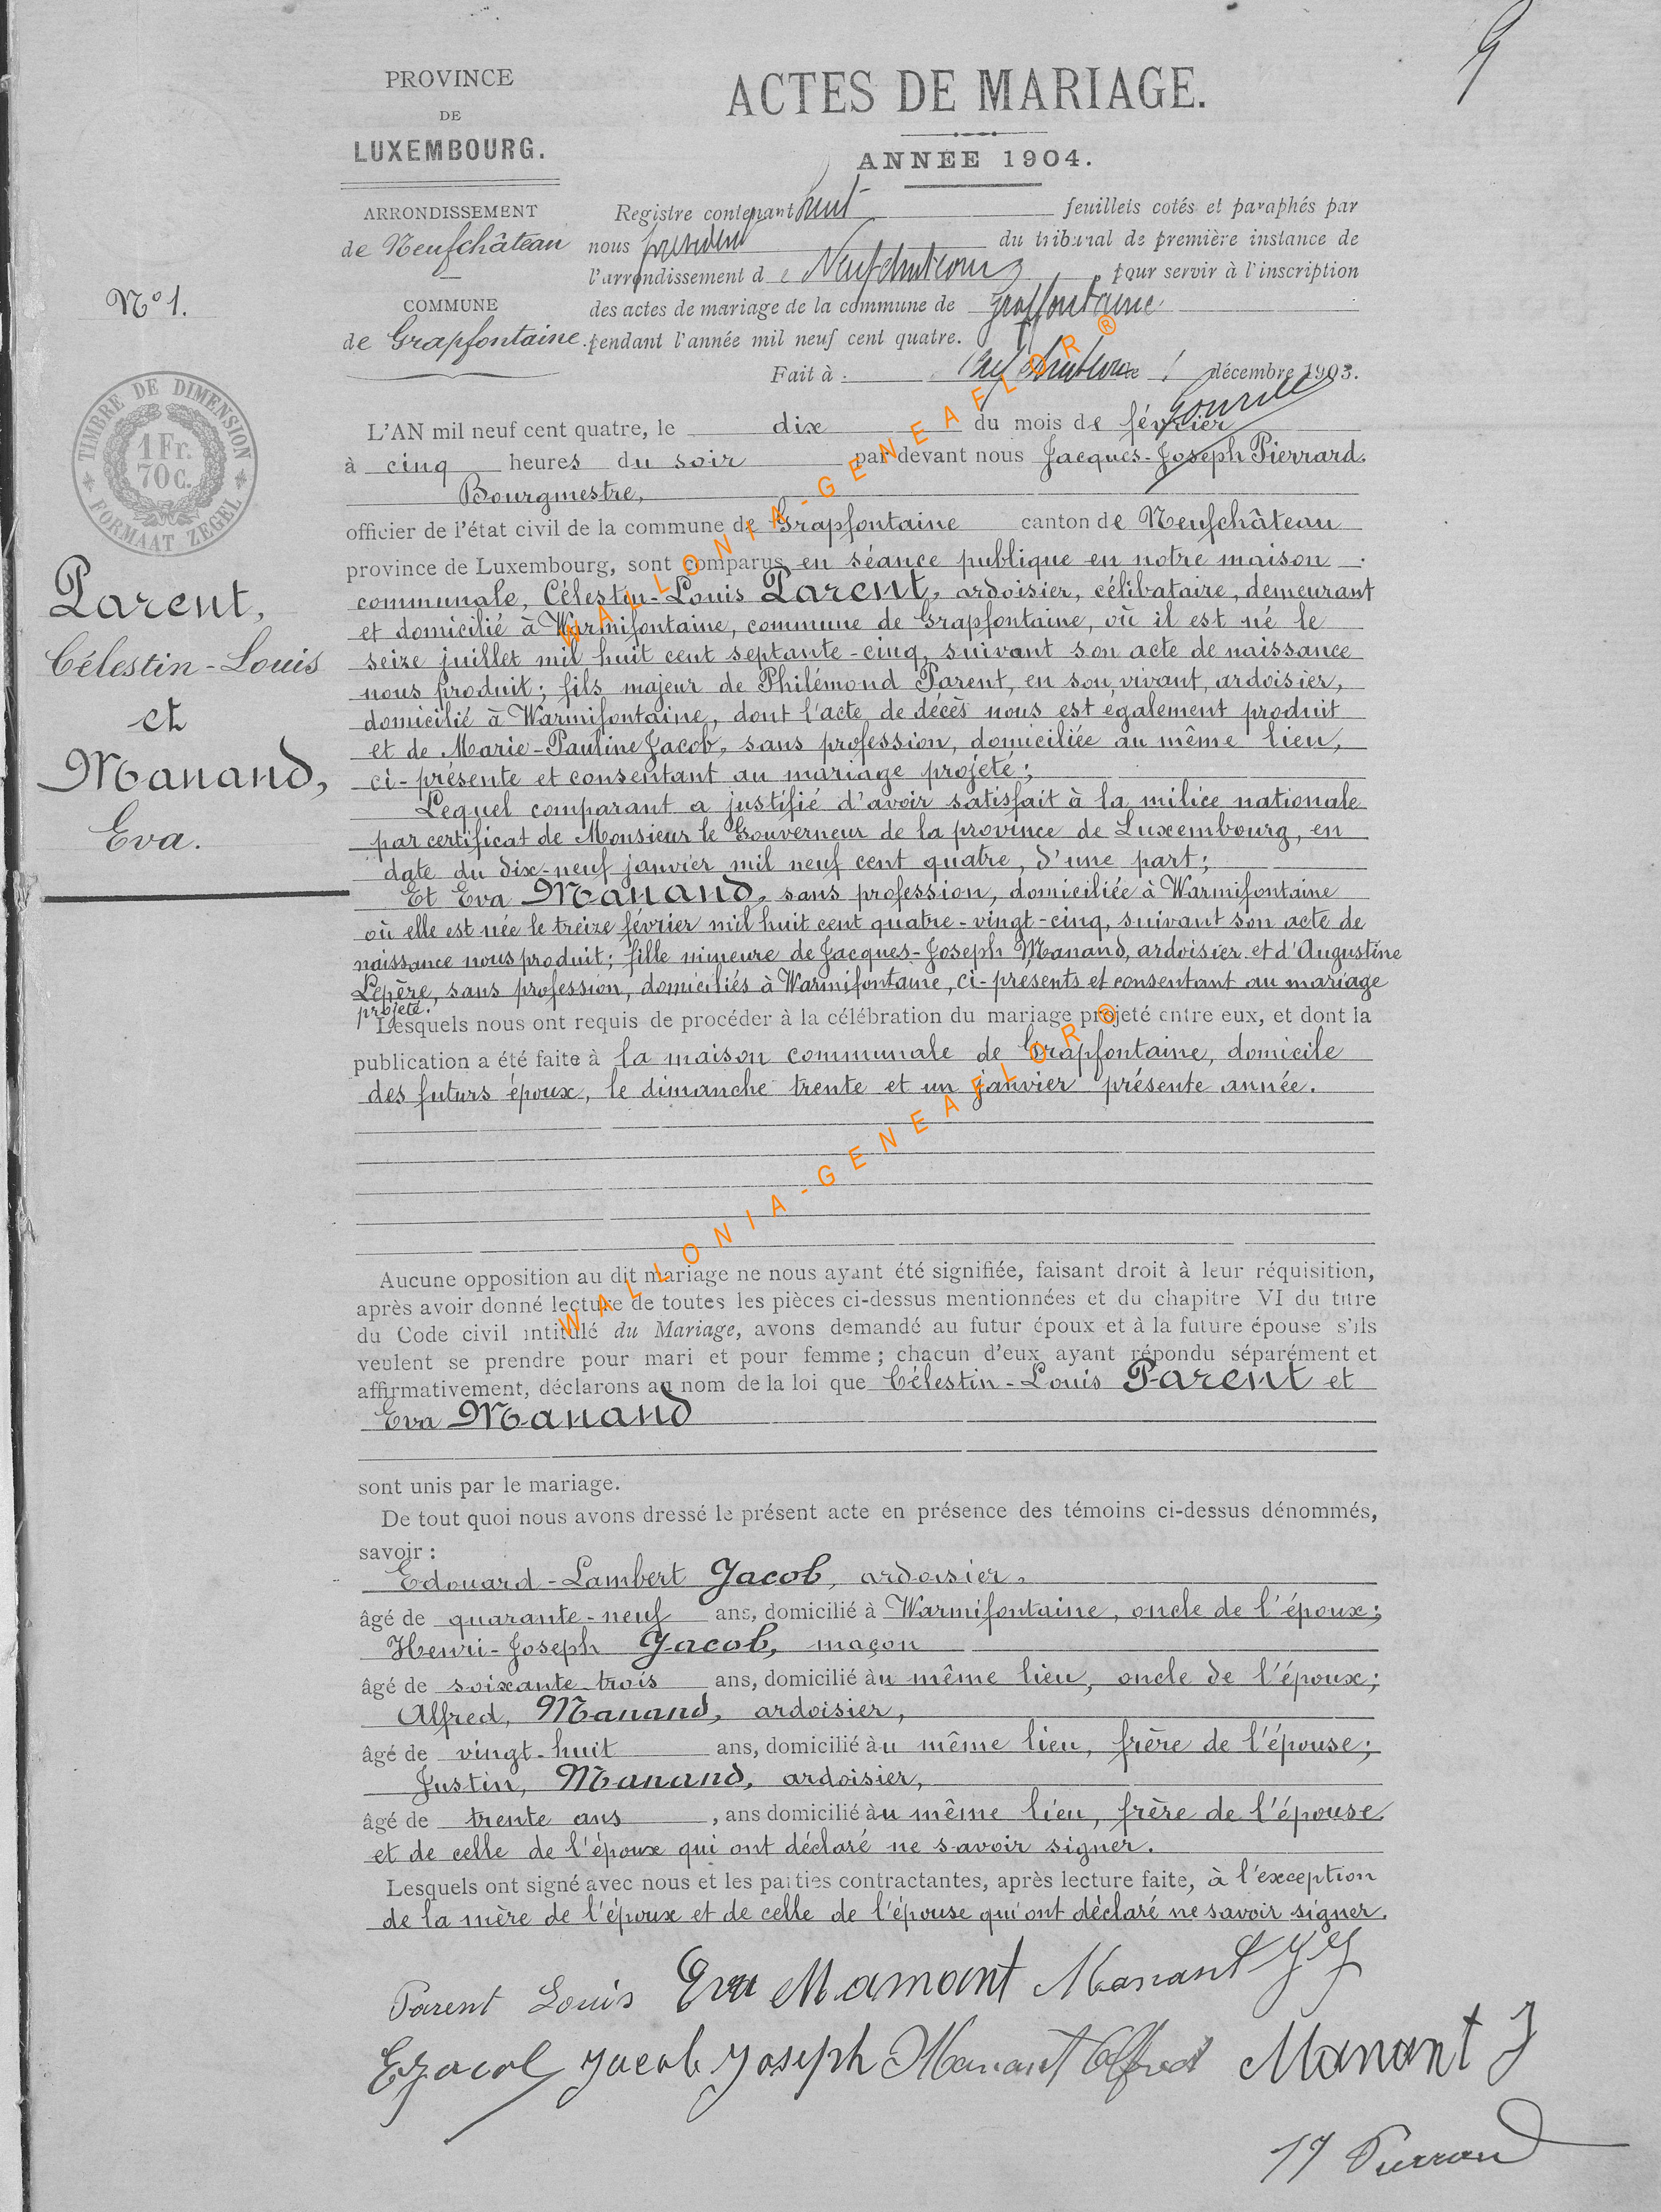 PROVINCE
DE
LUXEMBOURG.
ARRONDISSEMENT
de Neufchâteau
COMMUNE
de Grapfontaine.
ACTES DE MARIAGE.
ANNÉE 1904.
Registre contenant huit feuillets cotés et paraphés par
nous président du tribunal de première instance de
l'arrondissement de Neufchâteau pour servir à l'inscription
des actes de mariage de la commune de Grapfontaine
pendant l'année mil neuf cent quatre.
Fait à décembre 1903.
N° 1.
TIMBRE DE DIMENSION
1 Fr.
70 c.
FORMAAT ZEGEL
Parent,
Célestin-Louis
et
Manand,
Eva.
L'AN mil neuf cent quatre, le dix du mois de février
à cinq heures du soir par devant nous Jacques-Joseph Pierrard,
Bourgmestre,
officier de l'état civil de la commune de Grapfontaine canton de Neufchâteau
province de Luxembourg, sont comparus en séance publique en notre maison
communale, Célestin-Louis Parent, ardoisier, célibataire, demeurant
et domicilié à Warmifontaine, commune de Grapfontaine, où il est né le
seize juillet mil huit cent septante-cinq, suivant son acte de naissance
nous produit; fils majeur de Philémond Parent, en son vivant, ardoisier,
domicilié à Warmifontaine, dont l'acte de décès nous est également produit
et de Marie-Pauline Jacob, sans profession, domiciliée au même lieu,
ci-présente et consentant au mariage projeté;
Lequel comparant a justifié d'avoir satisfait à la milice nationale
par certificat de Monsieur le Gouverneur de la province de Luxembourg, en
date du dix-neuf janvier mil neuf cent quatre, d'une part;
Et Eva Manand, sans profession, domiciliée à Warmifontaine
où elle est née le treize février mil huit cent quatre-vingt-cinq, suivant son acte de
naissance nous produit; fille mineure de Jacques-Joseph Manand, ardoisier et d'Augustine
Lepère, sans profession, domiciliés à Warmifontaine, ci-présents et consentant au mariage
projeté.
Lesquels nous ont requis de procéder à la célébration du mariage projeté entre eux, et dont la
publication a été faite à la maison communale de Grapfontaine, domicile
des futurs époux, le dimanche trente et un janvier présente année.
Aucune opposition au dit mariage ne nous ayant été signifiée, faisant droit à leur réquisition,
après avoir donné lecture de toutes les pièces ci-dessus mentionnées et du chapitre VI du titre
du Code civil intitulé du Mariage, avons demandé au futur époux et à la future épouse s'ils
veulent se prendre pour mari et pour femme; chacun d'eux ayant répondu séparément et
affirmativement, déclarons au nom de la loi que Célestin-Louis Parent et
Eva Manand
sont unis par le mariage.
De tout quoi nous avons dressé le présent acte en présence des témoins ci-dessus dénommés,
savoir :
Edouard-Lambert Jacob, ardoisier,
âgé de quarante-neuf ans, domicilié à Warmifontaine, oncle de l'époux;
Henri-Joseph Jacob, maçon
âgé de soixante-trois ans, domicilié au même lieu, oncle de l'époux;
Alfred, Manand, ardoisier,
âgé de vingt-huit ans, domicilié au même lieu, frère de l'épouse;
Justin, Manand, ardoisier,
âgé de trente ans , ans domicilié au même lieu, frère de l'épouse
et de celle de l'époux qui ont déclaré ne savoir signer.
Lesquels ont signé avec nous et les parties contractantes, après lecture faite, à l'exception
de la mère de l'époux et de celle de l'épouse qui ont déclaré ne savoir signer.
Parent Louis Eva Mamant Manant J J
E Jacob Jacob Joseph Manant Alfred Manant J
JJ Pierrard
WALLONIA-GENEAFLOR®
WALLONIA-GENEAFLOR®